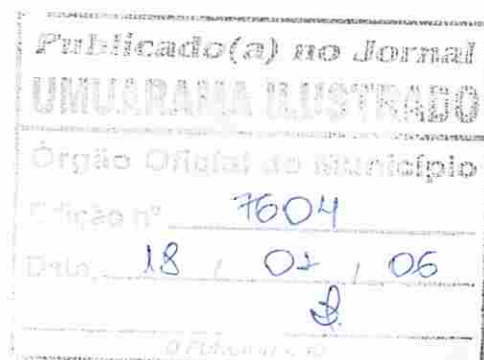 Publicado(a) no Jornal
UMUARAMA ILUSTRADO
Órgão Oficial do Município
Edição nº 7604
Data, 18 / / 06